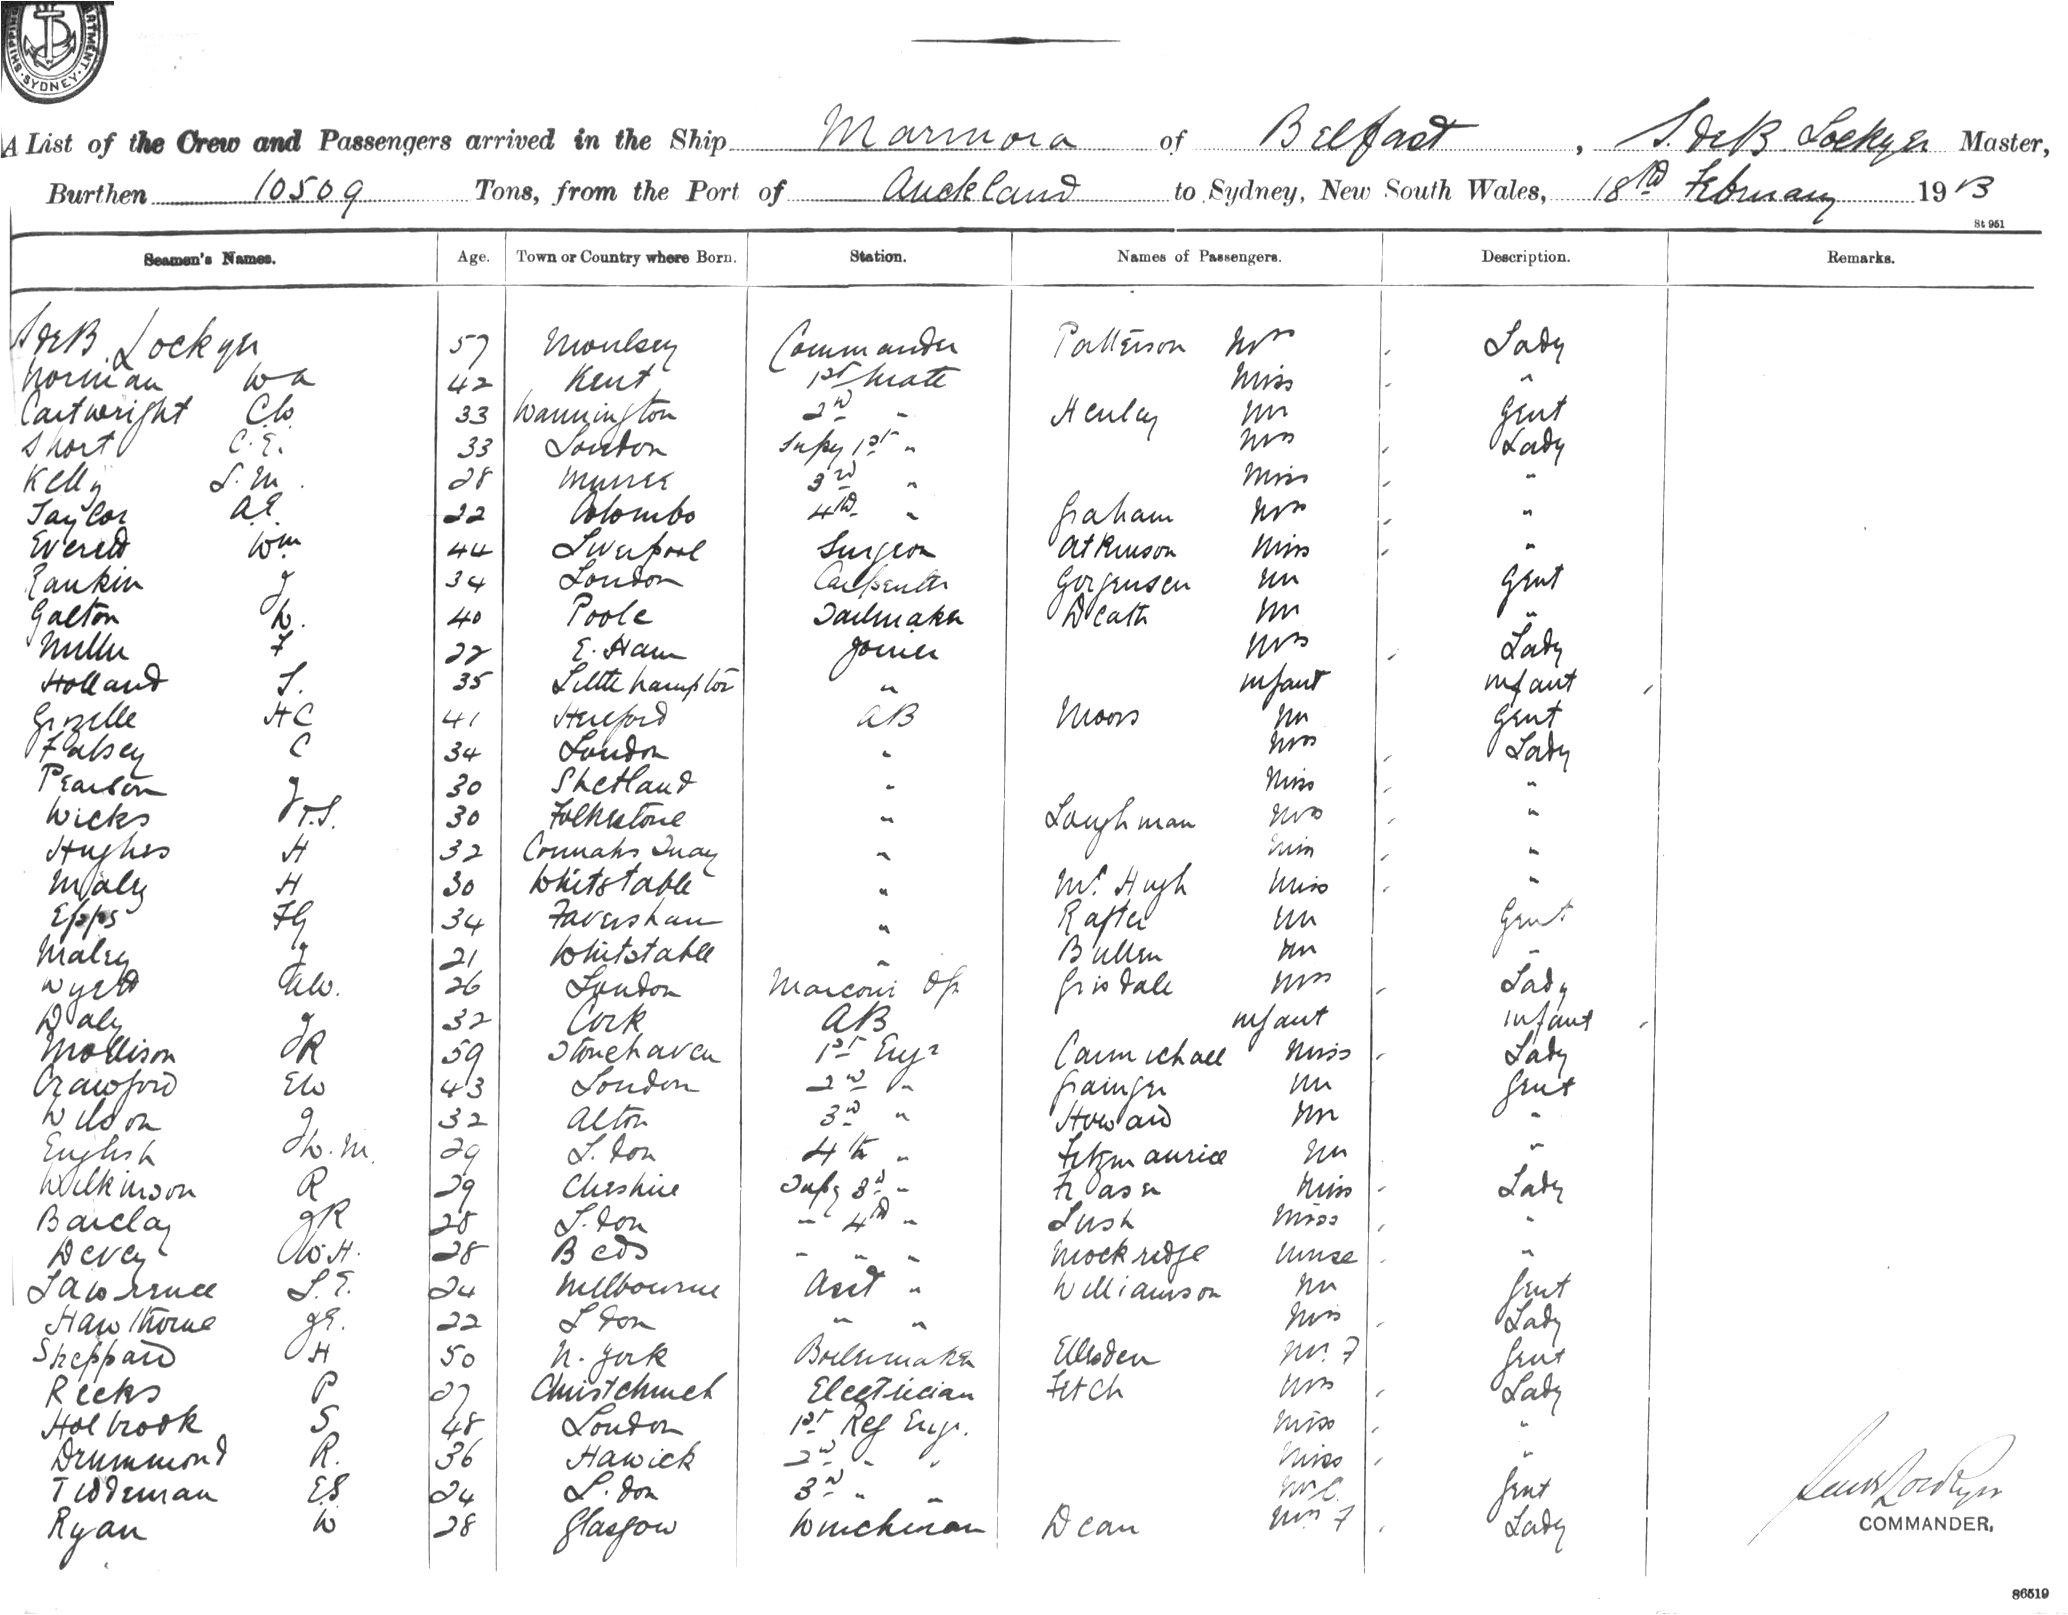 SHIPPING DEPARTMENT · SYDNEY ·
A List of the Crew and Passengers arrived in the Ship Marmora of Belfast, S. de B. Lockyer Master,
Burthen 10509 Tons, from the Port of Auckland to Sydney, New South Wales, 18th February 1913
St 951
Seamen's Names. Age. Town or Country where Born. Station. Names of Passengers. Description. Remarks.
S de B. Lockyer 57 Moulsey Commander Patterson Mrs Lady
Norman Wa 42 Kent 1st Mate Miss "
Cartwright C.W. 33 Wannington 2nd " Henley Mr Gent
Short C.E. 33 London Supy 1st " Mrs Lady
Kelly S.M. 28 Murree 3rd " Miss "
Taylor A.E. 22 Colombo 4th " Graham Mrs "
Everett Wm 44 Liverpool Surgeon Atkinson Miss "
Rankin J 34 London Carpenter Gorjensen Mr Gent
Galton W. 40 Poole Sailmaker Death Mr "
Miller F 22 E. Ham Joiner Mrs Lady
Holland S. 35 Littlehampton " infant infant
Grizelle HC 41 Hereford AB Moors Mr Gent
Falsey C 34 London " Mrs Lady
Pearson J 30 Shetland " Miss "
Wicks T.S. 30 Folkestone " Loughman Mrs "
Hughes H 32 Connahs Quay " Miss "
Maley H 30 Whitstable " Mc Hugh Miss "
Epps FG 34 Faversham " Rafter Mr Gent
Maley J 21 Whitstable " Bullen Mr "
Wyett A.W. 26 London Marconi Op Grisdale Mrs Lady
Daly J 32 Cork AB infant infant
Mollison JR 59 Stonehaven 1st Engr Carmichael Miss Lady
Crawford EW 43 London 2nd " Grainger Mr Gent
Wilson J 32 Alton 3rd " Howard Mr "
English W.M. 29 L.don 4th " Fitzmaurice Mr "
Wilkinson R 29 Cheshire Supy 3rd " Fraser Miss Lady
Barclay JR 28 L.don " 4th " Lush Miss "
Devey W.H. 28 Beds " " " Mockridge Nurse "
Lawrence S.E. 24 Melbourne Asst " Williamson Mr Gent
Hawthorne J.E. 22 L don " " Mrs Lady
Sheppard H 50 N. York Boilermaker Ellesden Mr. F Gent
Reeks P 27 Christchurch Electrician Fetch Mrs Lady
Holbrook S 48 London 1st Ref Engr. Miss "
Drummond R. 36 Hawick 2nd " " Miss "
Tiddeman E.S 24 L.don 3rd " " Mr C. Gent
Ryan W 28 Glasgow Winchman Dean Mrs F Lady
COMMANDER.
86519